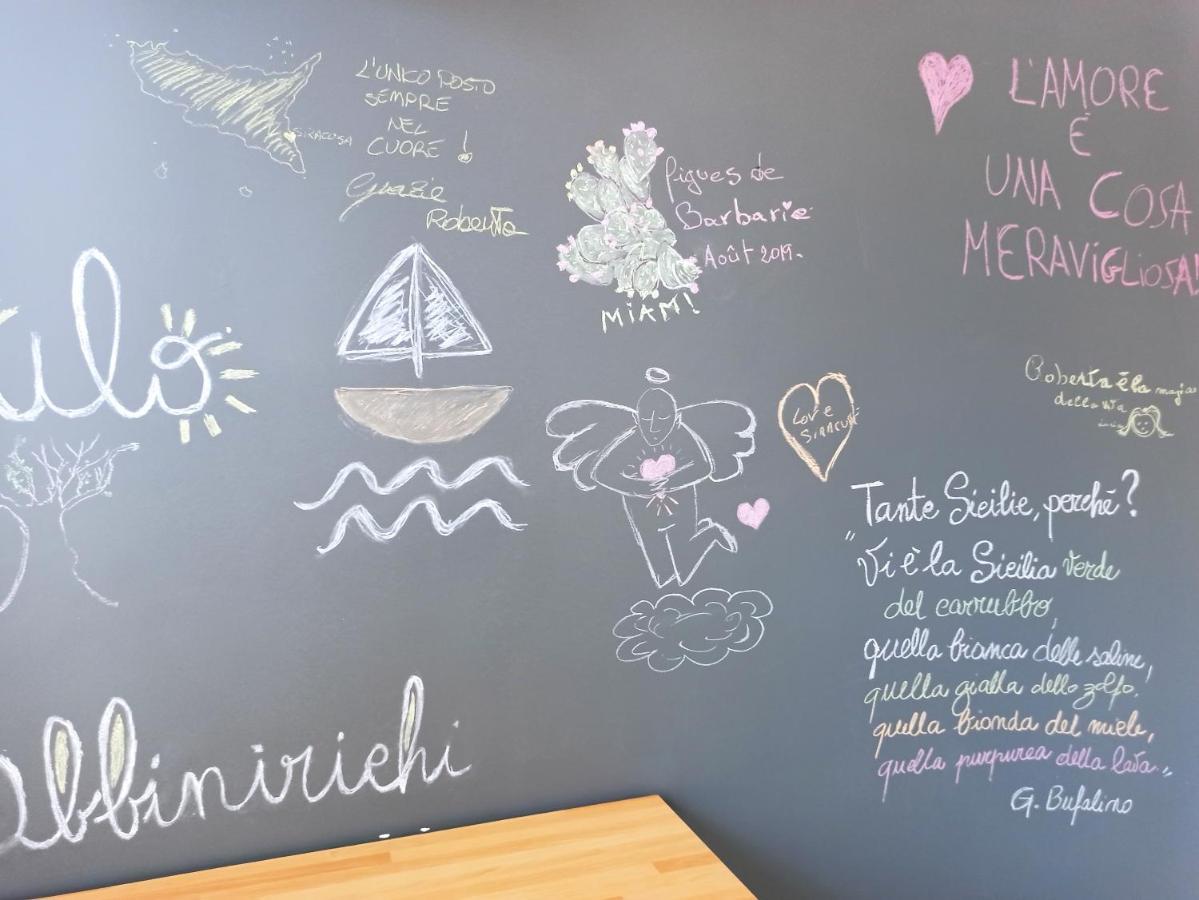 L'UNICO POSTO
SEMPRE
NEL
CUORE!
SIRACUSA
Grazie
Roberta
Figues de
Barbarie
Août 2019.
MIAM!
L'AMORE
È
UNA COSA
MERAVIGLIOSA!
Roberta è la magia
della vita
Love
Tante Sicilie, perché?
"Vi è la Sicilia verde
del carrubbo,
quella bianca delle saline,
quella gialla dello zolfo.
quella bionda del miele,
quella purpurea della lava.."
G. Bufalino
abbinirichi